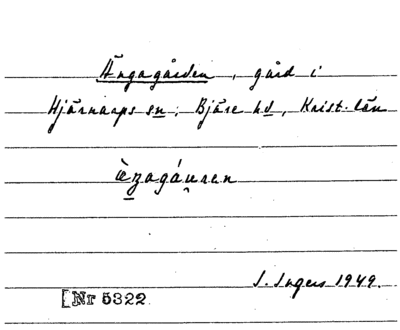 Ängagården, gård i
Hjärnarps sn; Bjäre hd, Krist. län
I. Ingers 1949.
[Nr 5322